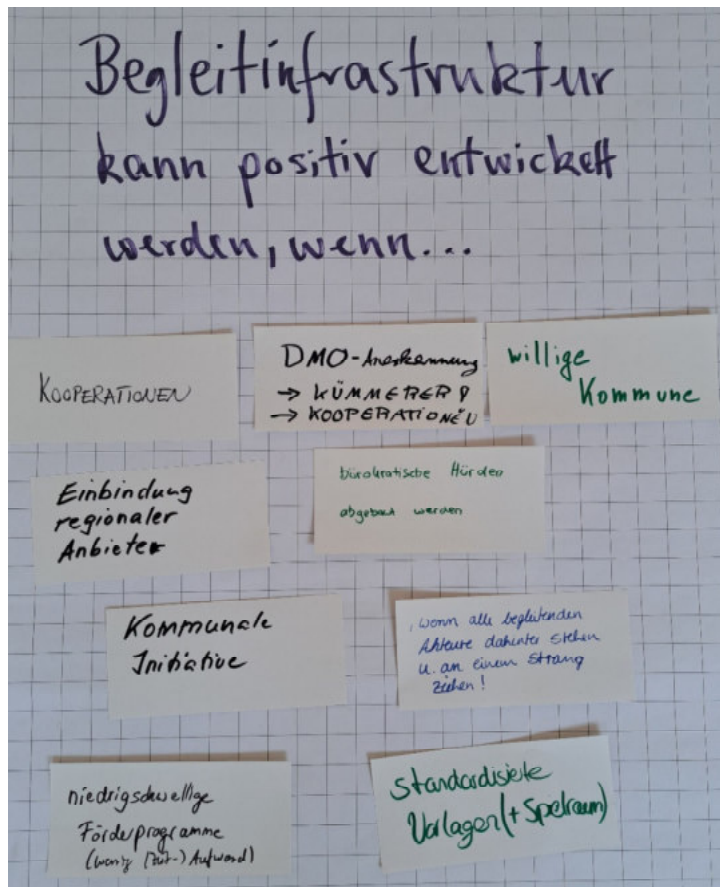 Begleitinfrastruktur
kann positiv entwickelt
werden, wenn...
KOOPERATIONEN
DMO-Anerkennung
→ KÜMMERER!
→ KOOPERATIONEN
willige
Kommune
Einbindung
regionaler
Anbieter
bürokratische Hürden
abgebaut werden
Kommunale
Initiative
, wenn alle begleitenden
Akteure dahinter stehen
u. an einem Strang
ziehen!
niedrigschwellige
Förderprogramme
(wenig (Zeit-) Aufwand)
Standardisierte
Vorlagen (+ Spielraum)